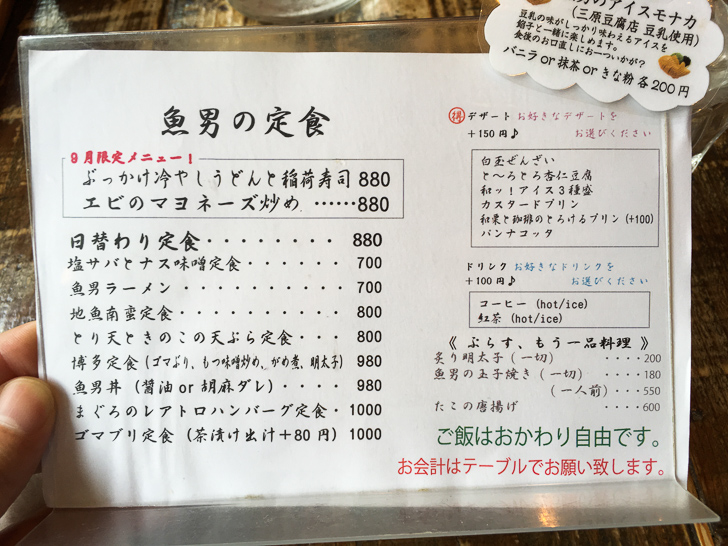 のアイスモナカ
(三原豆腐店 豆乳使用)
豆乳の味がしっかり味わえるアイスを
餡子と一緒に楽しめます。
食後のお口直しにお一ついかが?
バニラ or 抹茶 or きな粉 各200円
魚男の定食
9月限定メニュー!
ぶっかけ冷やしうどんと稲荷寿司 880
エビのマヨネーズ炒め ‥‥‥880
日替わり定食・・・・・・・・ 880
塩サバとナス味噌定食・・・・・・ 700
魚男ラーメン ・・・・・・・・・ 700
地魚南蛮定食・・・・・・・・・ 800
とり天ときのこの天ぷら定食・・・ 800
博多定食(ゴマぶり、もつ味噌炒め、がめ煮、明太子) 980
魚男丼(醤油 or 胡麻ダレ)・・・・ 980
まぐろのレアトロハンバーグ定食・ 1000
ゴマブリ定食(茶漬け出汁+80円) 1000
得 デザート お好きなデザートを
+150円♪ お選びください
白玉ぜんざい
と〜ろとろ杏仁豆腐
和ッ!アイス3種盛
カスタードプリン
和栗と珈琲のとろけるプリン(+100)
パンナコッタ
ドリンク お好きなドリンクを
+100円♪ お選びください
コーヒー(hot/ice)
紅茶(hot/ice)
《 ぷらす、もう一品料理 》
炙り明太子(一切) ・・・・200
魚男の玉子焼き(一切) ・・・・180
(一人前)・・・550
たこの唐揚げ ・・・・600
ご飯はおかわり自由です。
お会計はテーブルでお願い致します。